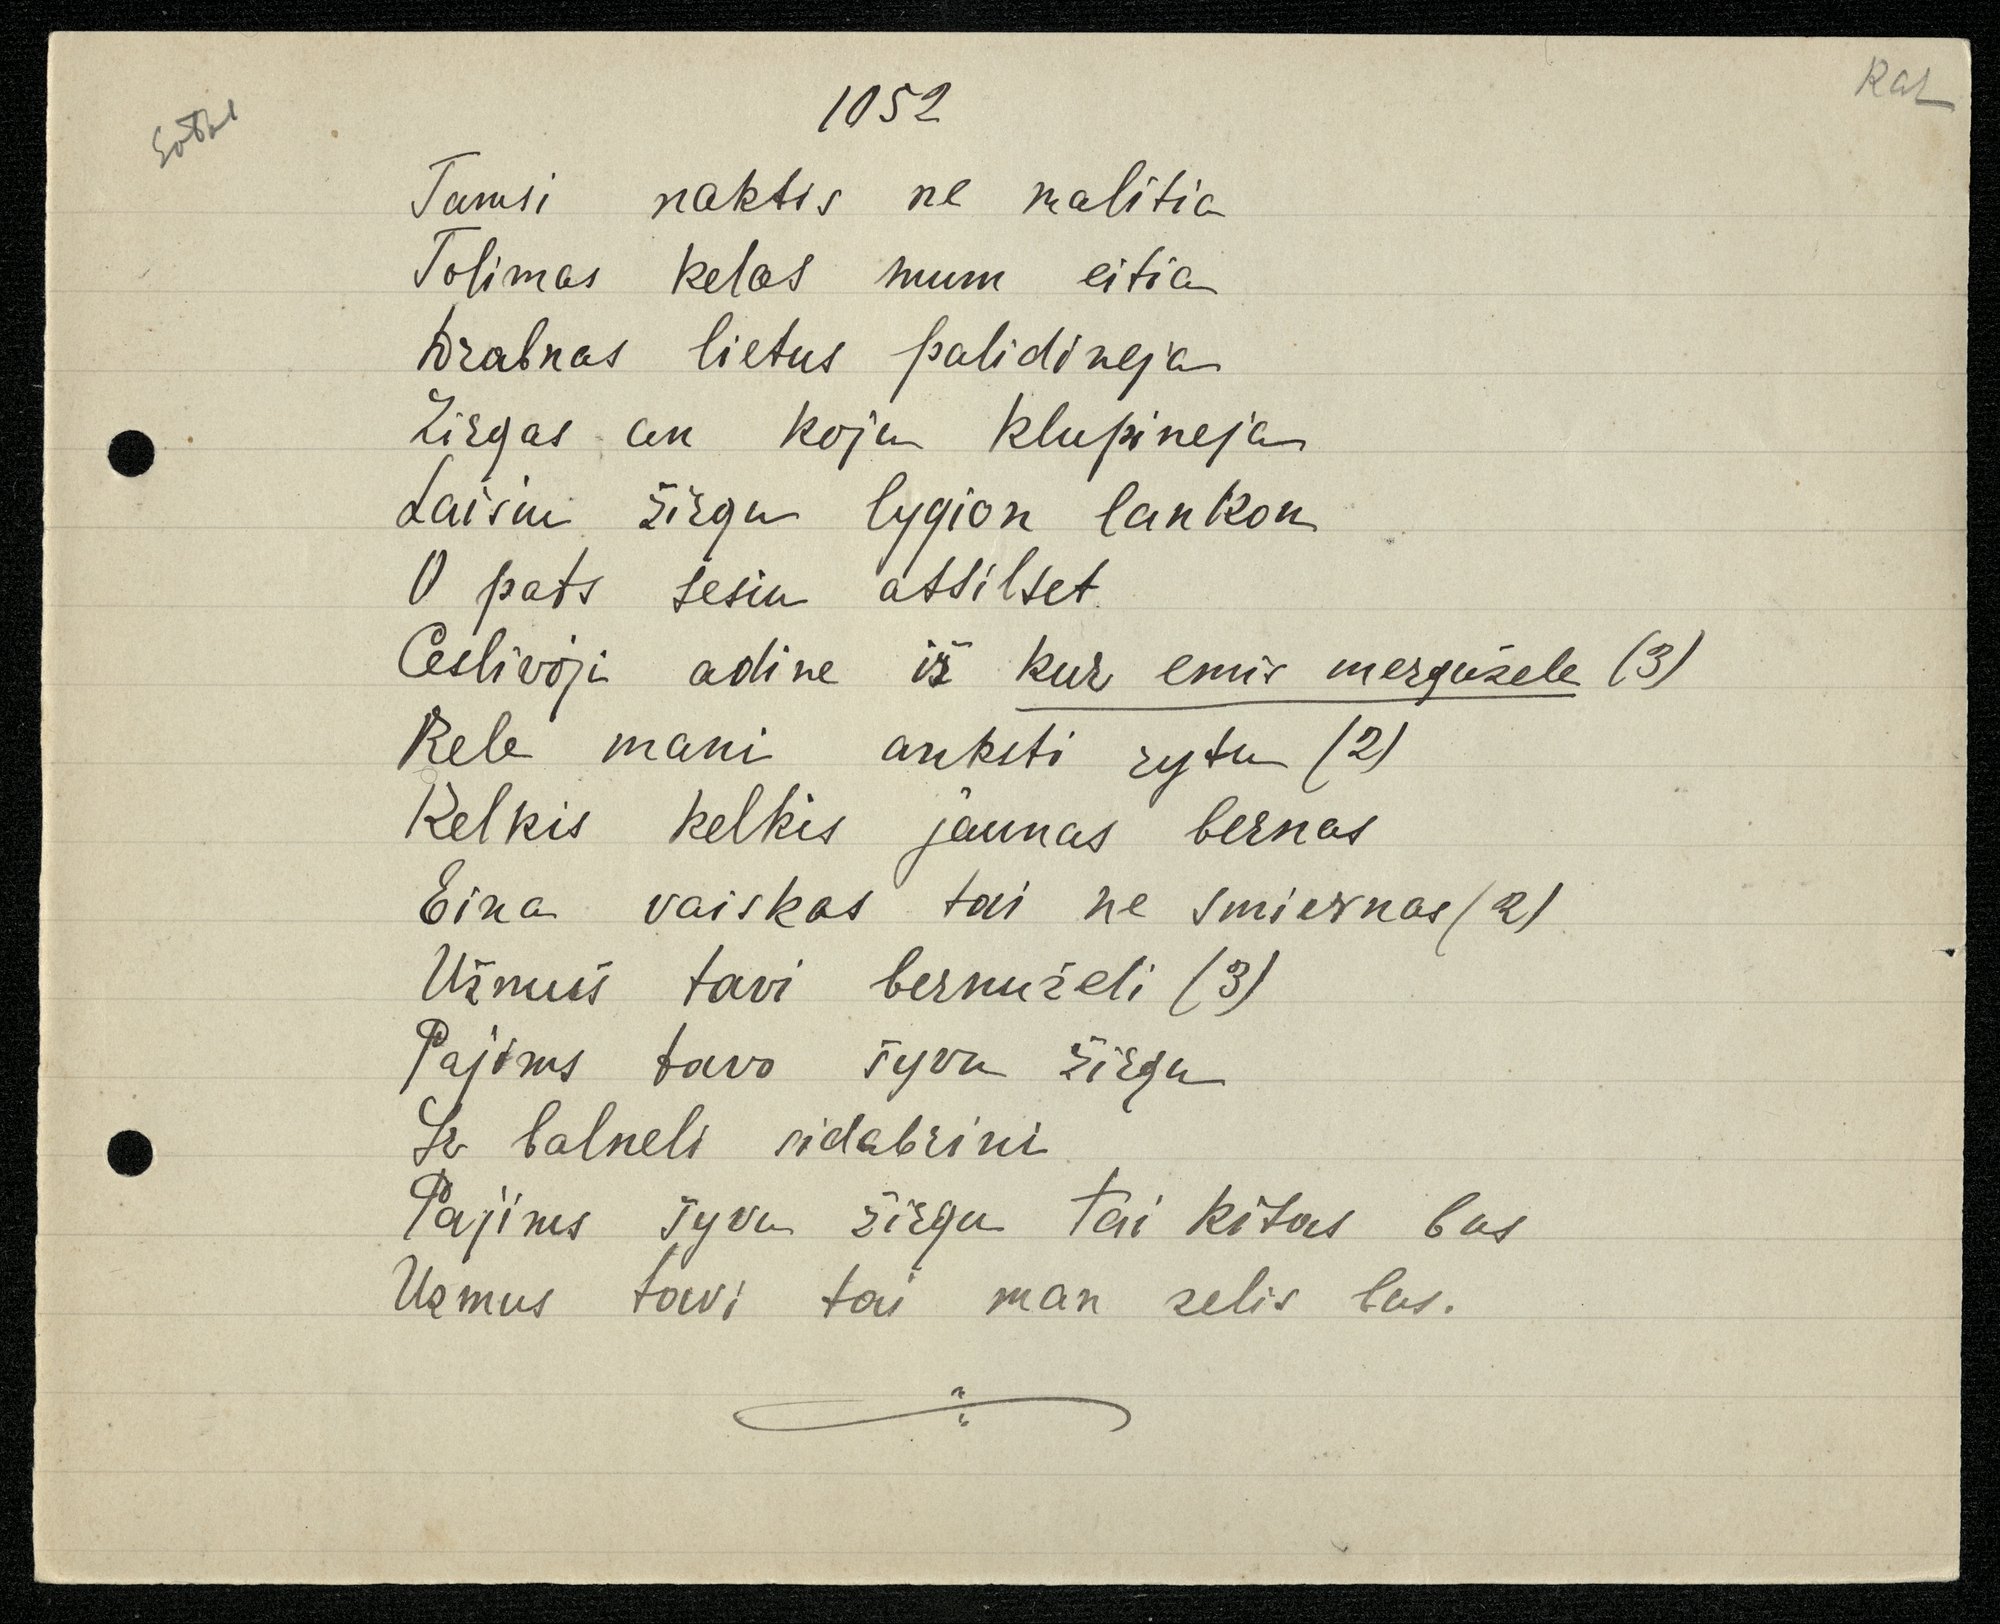 1052
Kar
Tamsi naktis ne malitia
Tolimas kelas mum eitia
Drabnas lietus palidineja
Žirgas an koju klupineja
Laisiu žirgu lygion lankon
O pats sesiu atsilset
Ceslivoji adine iš kur emis mergužele (3)
Kele mani anksti rytu (2)
Kelkis kelkis jaunas bernas
Eina vaiskas tai ne smiernas (2)
Užmuš tavi bernuželi (3)
Pajims tavo šyvu žirgu
Ir balneli sidabrini
Pajims šyvu žirgu tai kitas bus
Uzmus tavi tai man zelis bus.